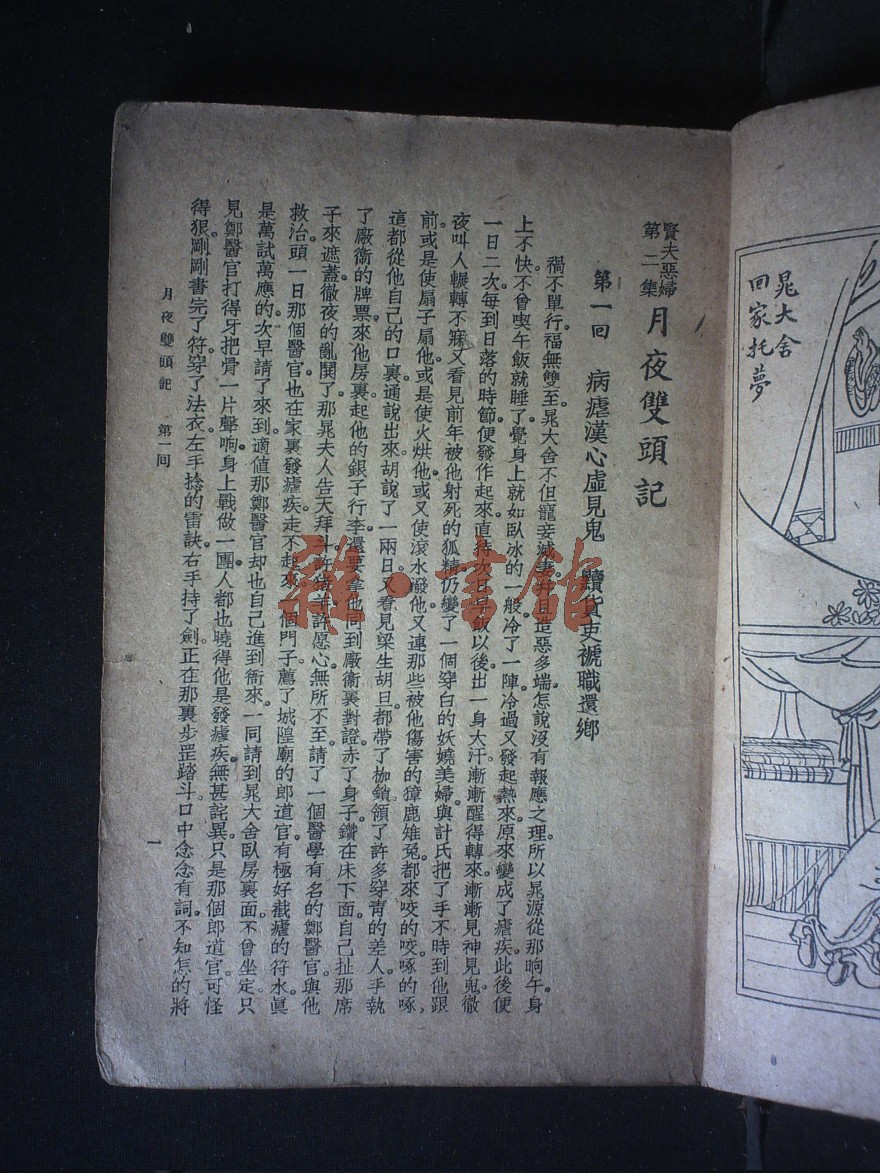 晁大舍
回家托夢
賢夫惡婦
第二集
月夜雙頭記
第一回　病瘧漢心虛見鬼　黷貨吏褫職還鄉
禍不單行。福無雙至。晁大舍不但寵妾滅妻。并且造惡多端。怎說沒有報應之理。所以晁源從那晌午身
上不快。不曾喫午飯就睡了覺。身上就如臥冰的一般。冷了一陣。冷過又發起熱來。原來變成了瘧疾。此後便
一日二次。每到日落的時節。便發作起來。直待次日早飯以後。出一身大汗。漸漸醒得轉來。漸漸見神見鬼。徹
夜叫人輾轉不寐。又看見前年被他射死的狐精。仍變了一個穿白的妖嬈美婦。與計氏把了手。不時到他跟
前。或是使扇子扇他。或是使火烘他。或又使滾水潑他。又連那些被他傷害的獐鹿雉兔。都來咬的咬。啄的啄
這都從他自己的口裏通說出來。胡說了一兩日。又看見梁生胡旦。都帶了枷鎖。領了許多穿青的差人。手執
了廠衛的牌票。來他房裏起他的銀子行李。還要拿他同到廠衛裏對證。赤了身子。鑽在床下面。自己扯那席
子來遮蓋。徹夜的亂鬧了。那晁夫人告天拜斗。許猪羊。許愿心。無所不至。請了一個醫學有名的鄭醫官與他
救治。頭一日那個醫官也在家裏發瘧疾。走不起來。一個門子薦了城隍廟的郎道官。有極好截瘧的符水。眞
是萬試萬應的。次早請了來到。適値那鄭醫官却也自己進到衙來。一同請到晁大舍臥房裏面。不曾坐定。只
見鄭醫官打得牙把骨一片聲响。身上戰做一團。人都也曉得他是發瘧疾。無甚詫異。只是那個郎道官可怪
得狠。剛剛書完了符。穿了法衣。左手捻的雷訣。右手持了劍。正在那裏步罡踏斗。口中念念有詞。不知怎的將
月夜雙頭記　第一回
一
雜·書館